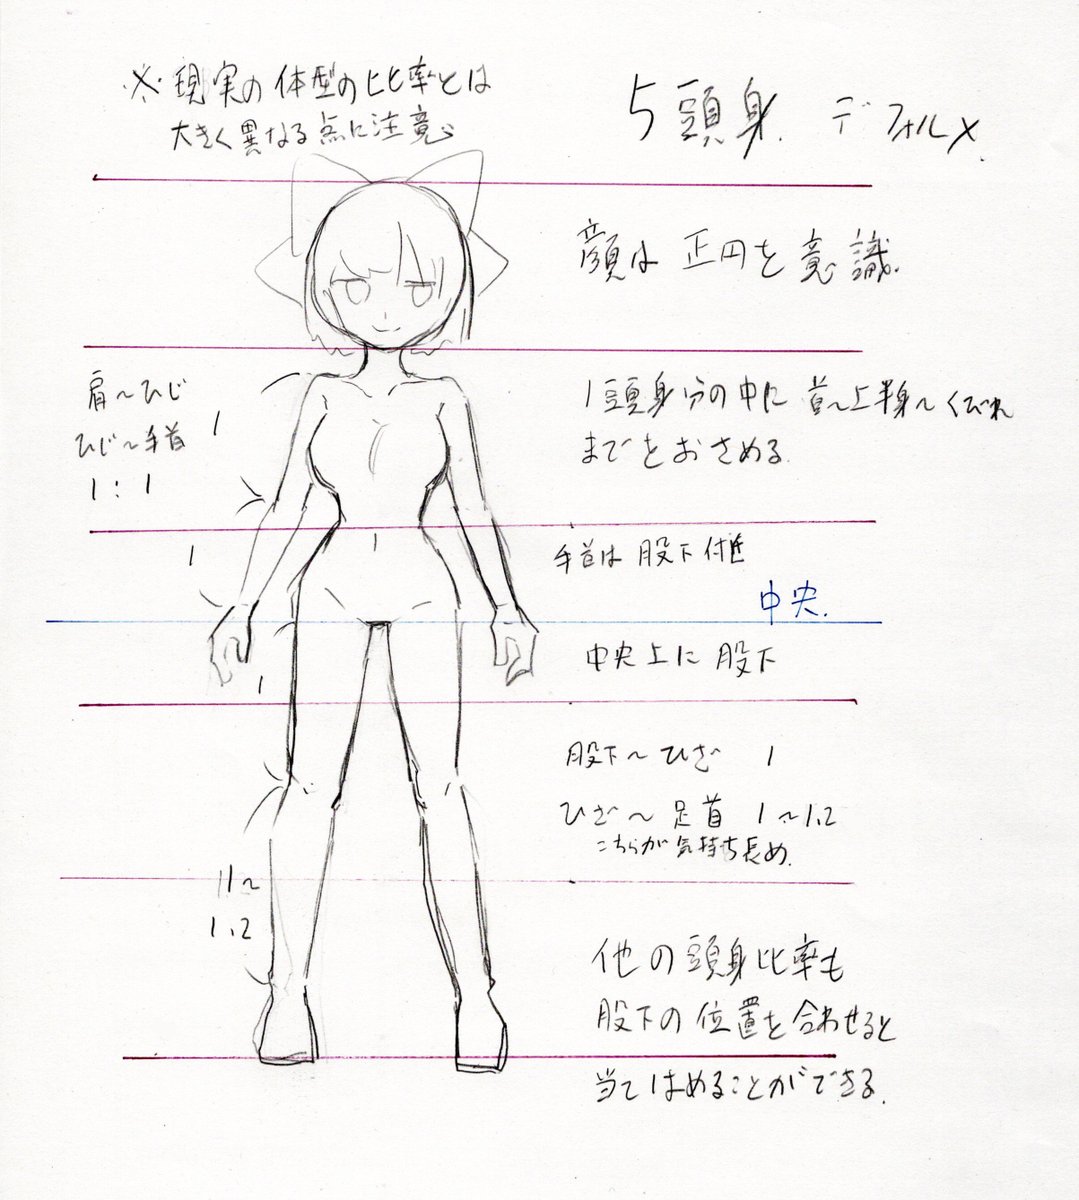 ※現実の体型の比率とは
大きく異なる点に注意
5頭身. デフォルメ.
顔は 正円を 意識.
肩〜ひじ
ひじ〜手首
1:1
1
1頭身分の中に 首〜上半身〜くびれ
までをおさめる.
1
手首は 股下付近
中央.
中央上に 股下
1
股下〜ひざ 1
ひざ〜足首 1〜1.2
こちらが気持ち長め.
1〜
1.2
他の頭身比率も
股下の位置を合わせると
当てはめることができる.